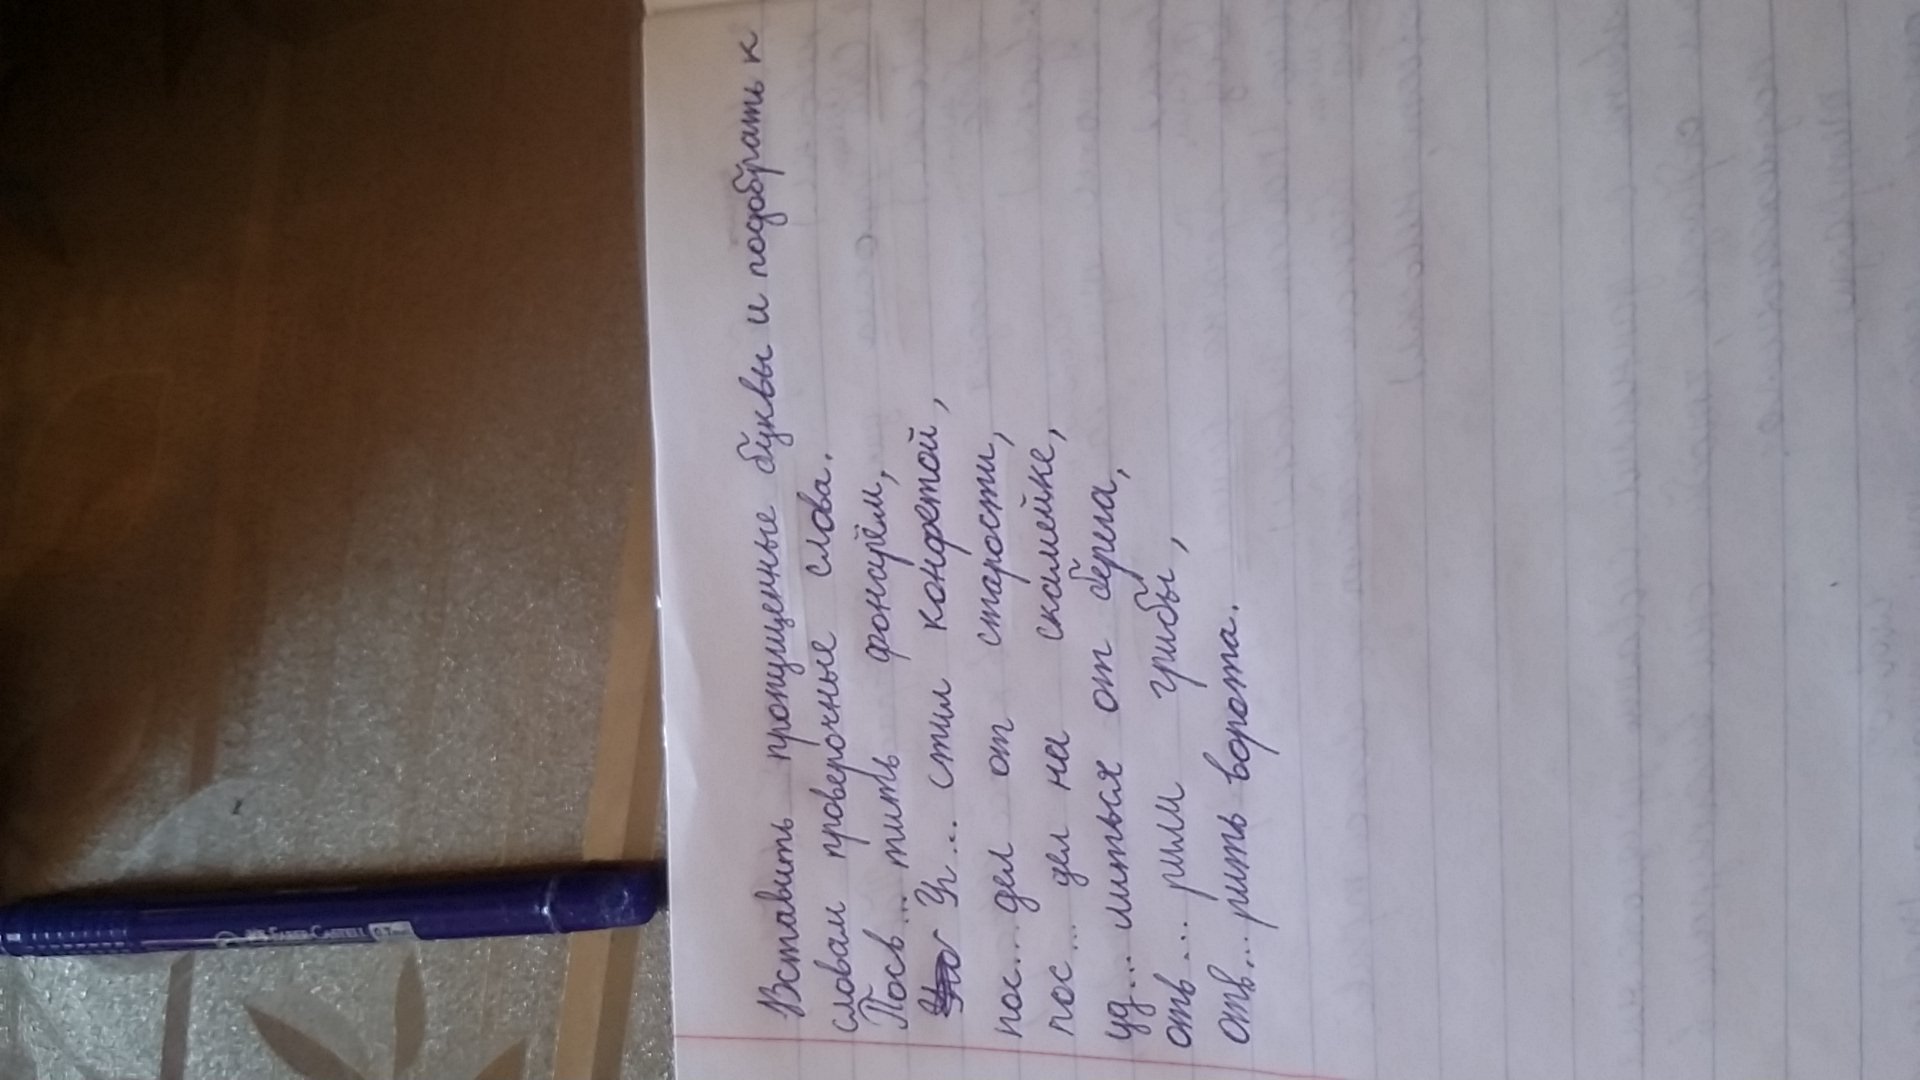 Вставить пропущенные буквы и подобрать к
словам проверочные слова.
Посв... тить фонарём,
Уг... стил конфетой,
пос... дел от старости,
пос... дел на скамейке,
уд... литься от берега,
отв... рили грибы,
отв... рить ворота.
FABER-CASTELL 0.7